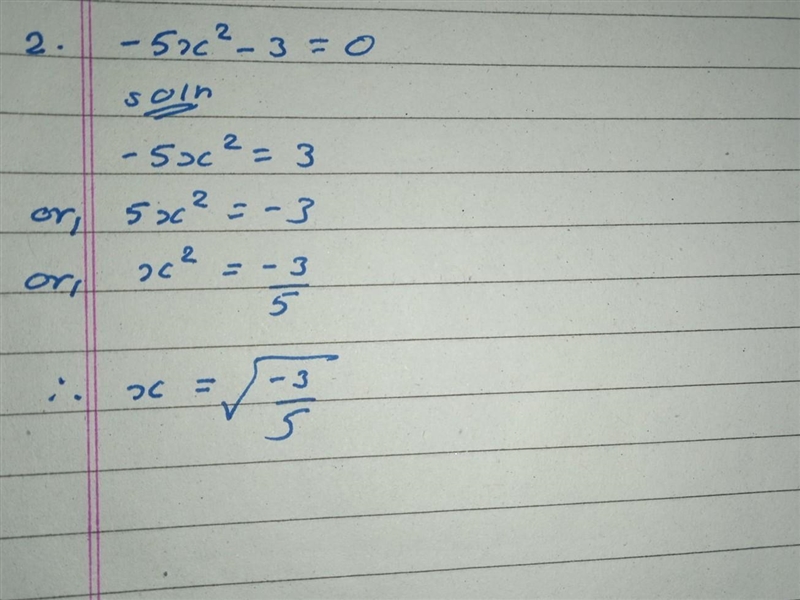 2. -5x² - 3 = 0
soln
-5x² = 3
or, 5x² = -3
or, x² = -3/5
∴ x = √(-3/5)